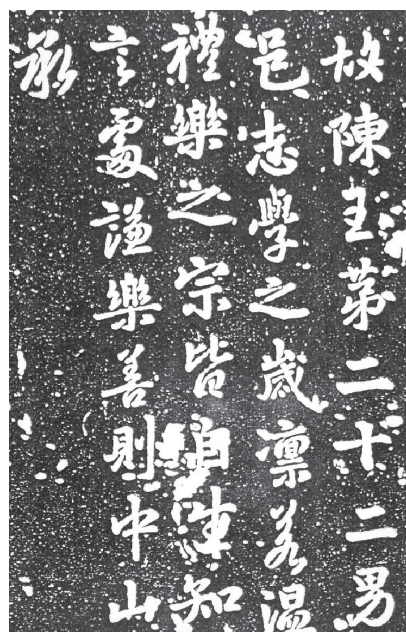 故陳王第二十二男
邑志學之歲凛若溫
禮樂之宗皆自知
言處謙樂善則中山
承